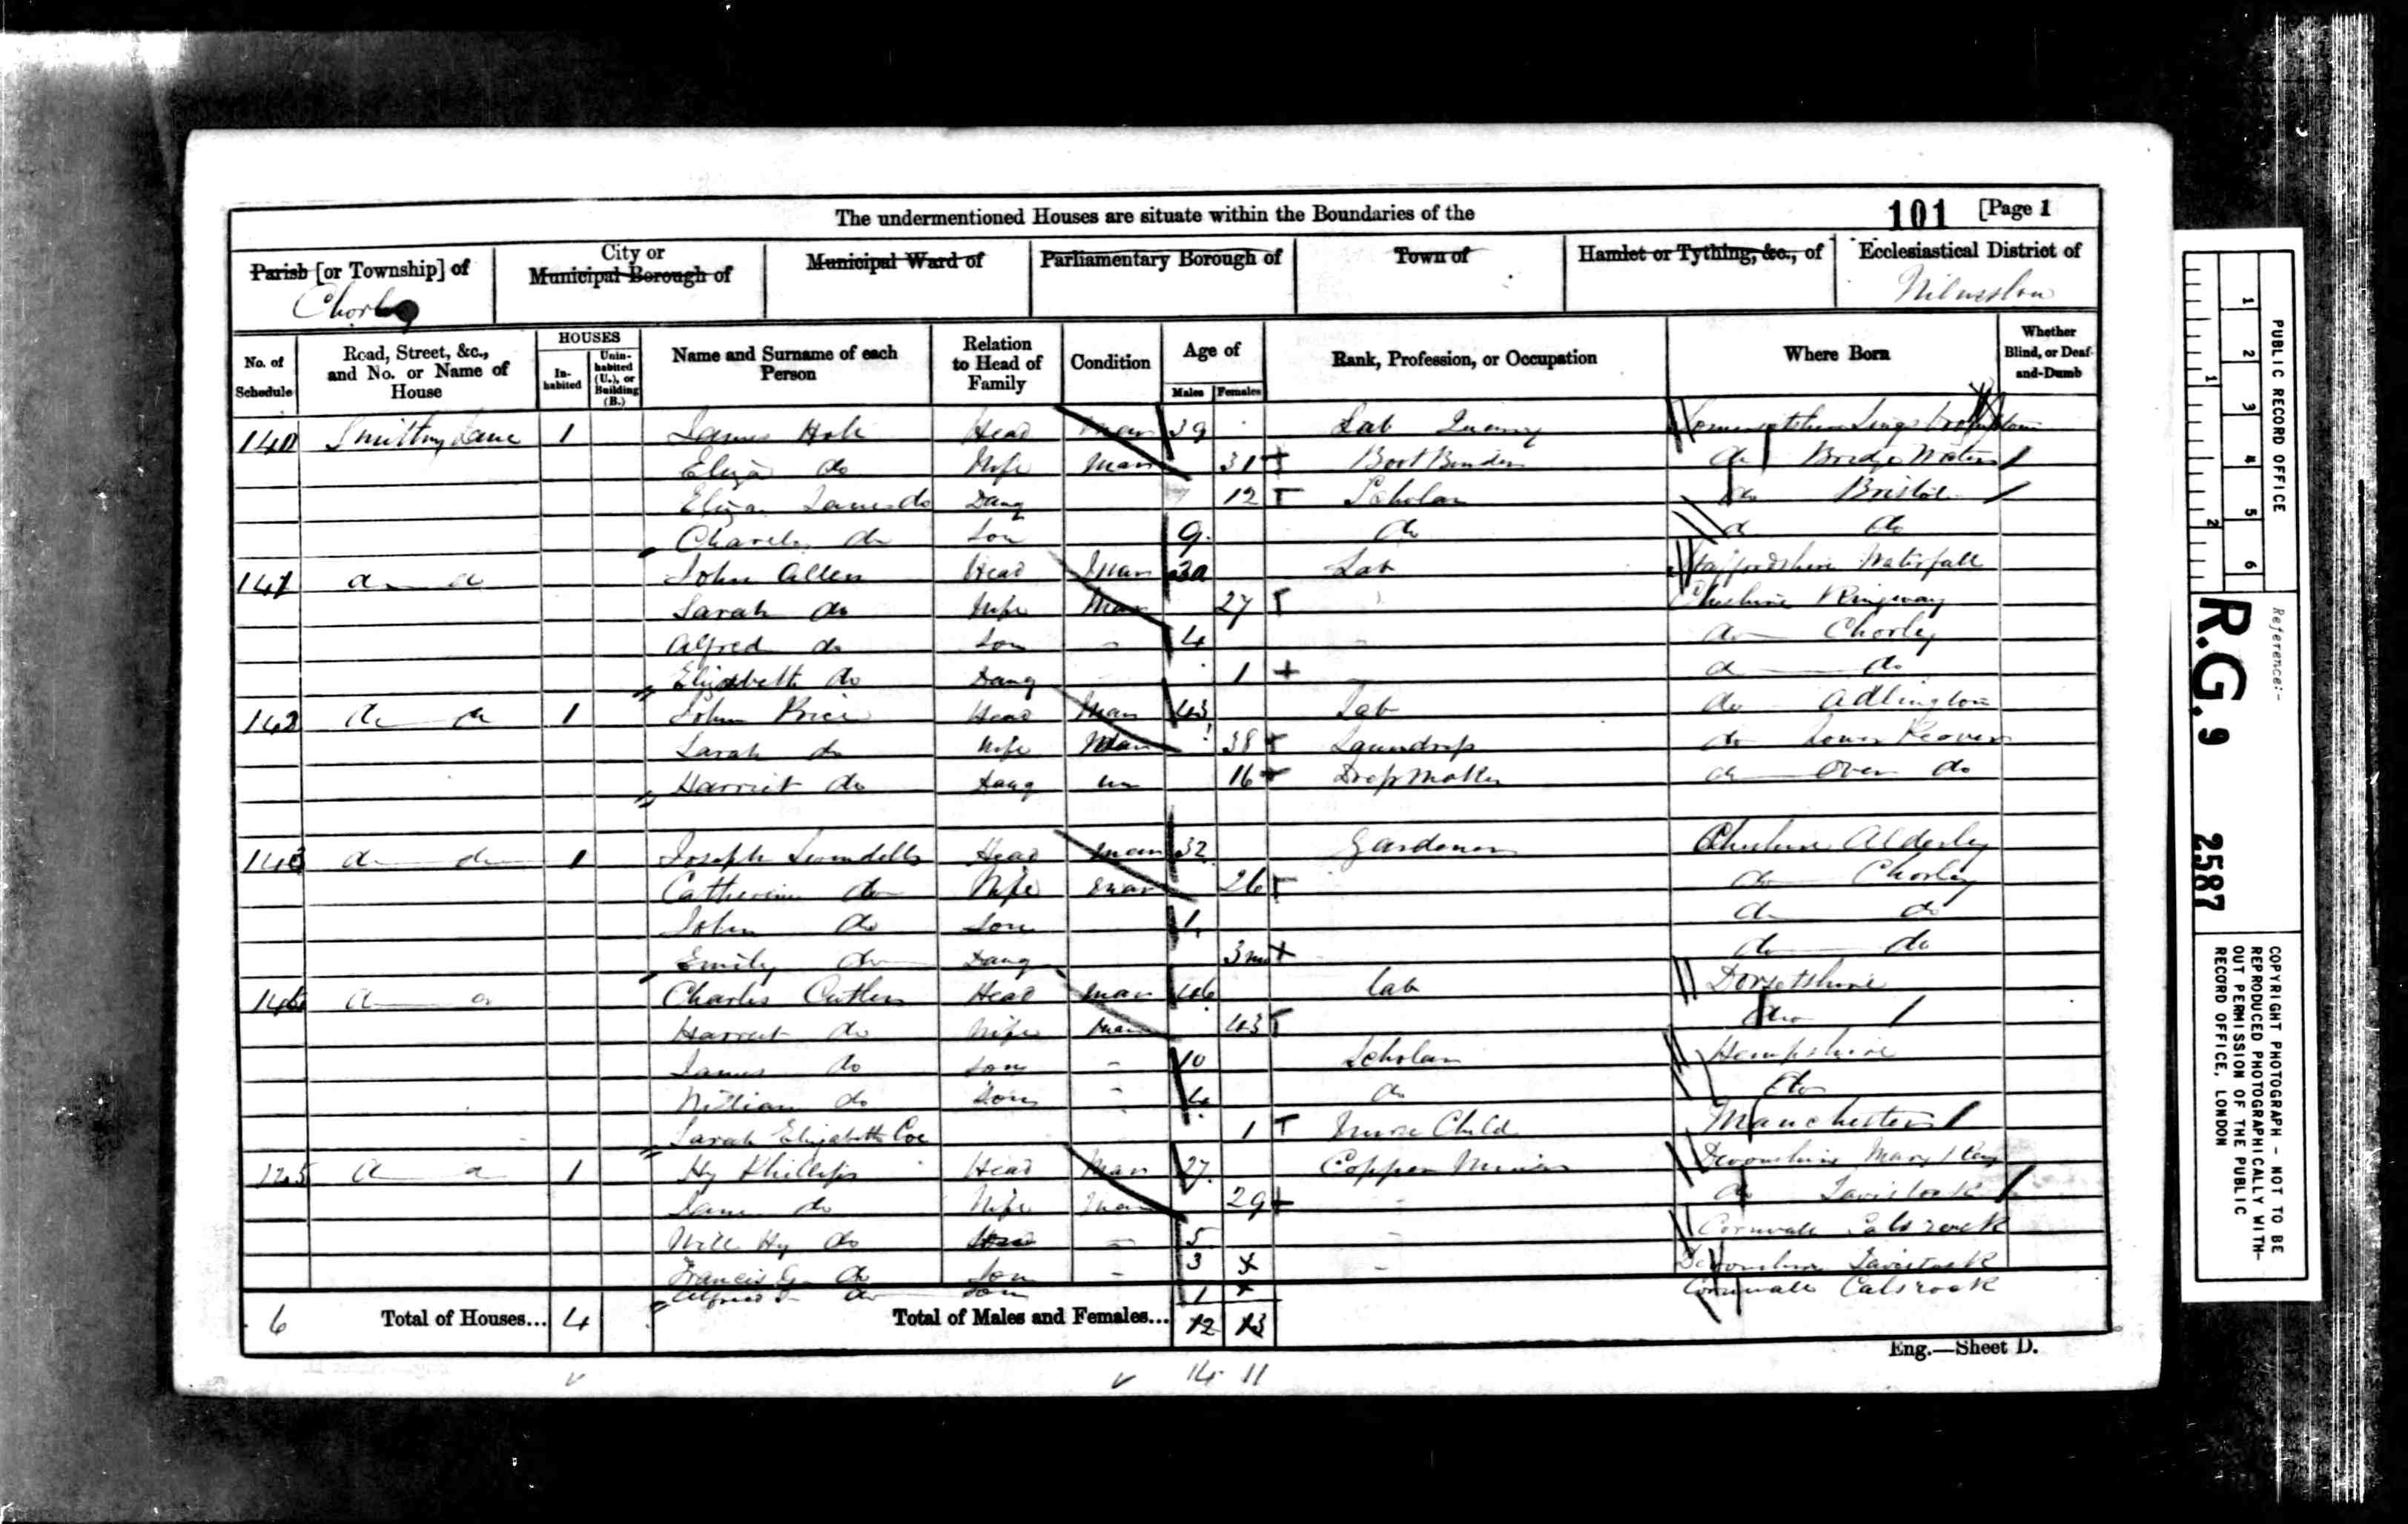 The undermentioned Houses are situate within the Boundaries of the
101 [Page 1
Parish [or Township] of
City or Municipal Borough of
Municipal Ward of
Parliamentary Borough of
Town of
Hamlet or Tything, &c., of
Ecclesiastical District of
Chorley
No. of Schedule
Road, Street, &c., and No. or Name of House
HOUSES
In-habited
Unin-habited (U.), or Building (B.)
Name and Surname of each Person
Relation to Head of Family
Condition
Age of
Males
Females
Rank, Profession, or Occupation
Where Born
Whether Blind, or Deaf-and-Dumb
140 Lane 1 James Head Mar 39 Lab
Eliza do Wife Mar 31 Boot Binder do Bridge Water
Eliza do Daug 12 Scholar do Bristol
Charles do Son 9 do do do
141 do do John Allen Head Mar 30 Lab Staffordshire Waterfall
Sarah do Wife Mar 27 Cheshire Ringway
Alfred do Son - 4 - do Chorley
Elizabeth do Daug - 1 - do do
142 do do 1 John Price Head Mar 43 Lab do Adlington
Sarah do Wife Mar 38 Laundress do Lower Peover
Harriet do Daug un 16 Dressmaker do Over do
143 do do 1 Joseph Head Mar 32 Gardener Cheshire Alderley
Catherine do Wife Mar 26 do Chorley
John do Son 1 do do
Emily do Daug 3 m do do
do do Charles Cutler Head Mar 46 Lab Dorsetshire
Harriet do Wife Mar 43 do
James do Son - 10 Scholar Hampshire
William do Son - 4 do
Sarah Elizabeth Coe 1 Nurse Child Manchester
do do 1 Hy Phillips Head Mar 27 Copper Miner Devonshire Mary
Jane do Wife Mar 29 - do Tavistock
Will Hy do - 5 - Cornwall Calsrock
Francis do Son - 3 - Devonshire Tavistock
do Son 1 Cornwall Calsrock
6 Total of Houses... 4 Total of Males and Females... 12 13
Eng.—Sheet D.
14 11
PUBLIC RECORD OFFICE
1 2 3 4 5 6
1 2
Reference:-
R.G. 9 2587
COPYRIGHT PHOTOGRAPH - NOT TO BE
REPRODUCED PHOTOGRAPHICALLY WITH-
OUT PERMISSION OF THE PUBLIC
RECORD OFFICE, LONDON